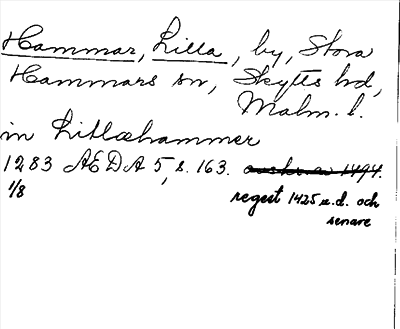 Hammar, Lilla, by, Stora
Hammars sn, Skytts hd,
Malm. l.
in Litlæhammer
1283 AEDA 5, s. 163. avskr. av 1494.
1/8 regest 1425 u.d. och
senare